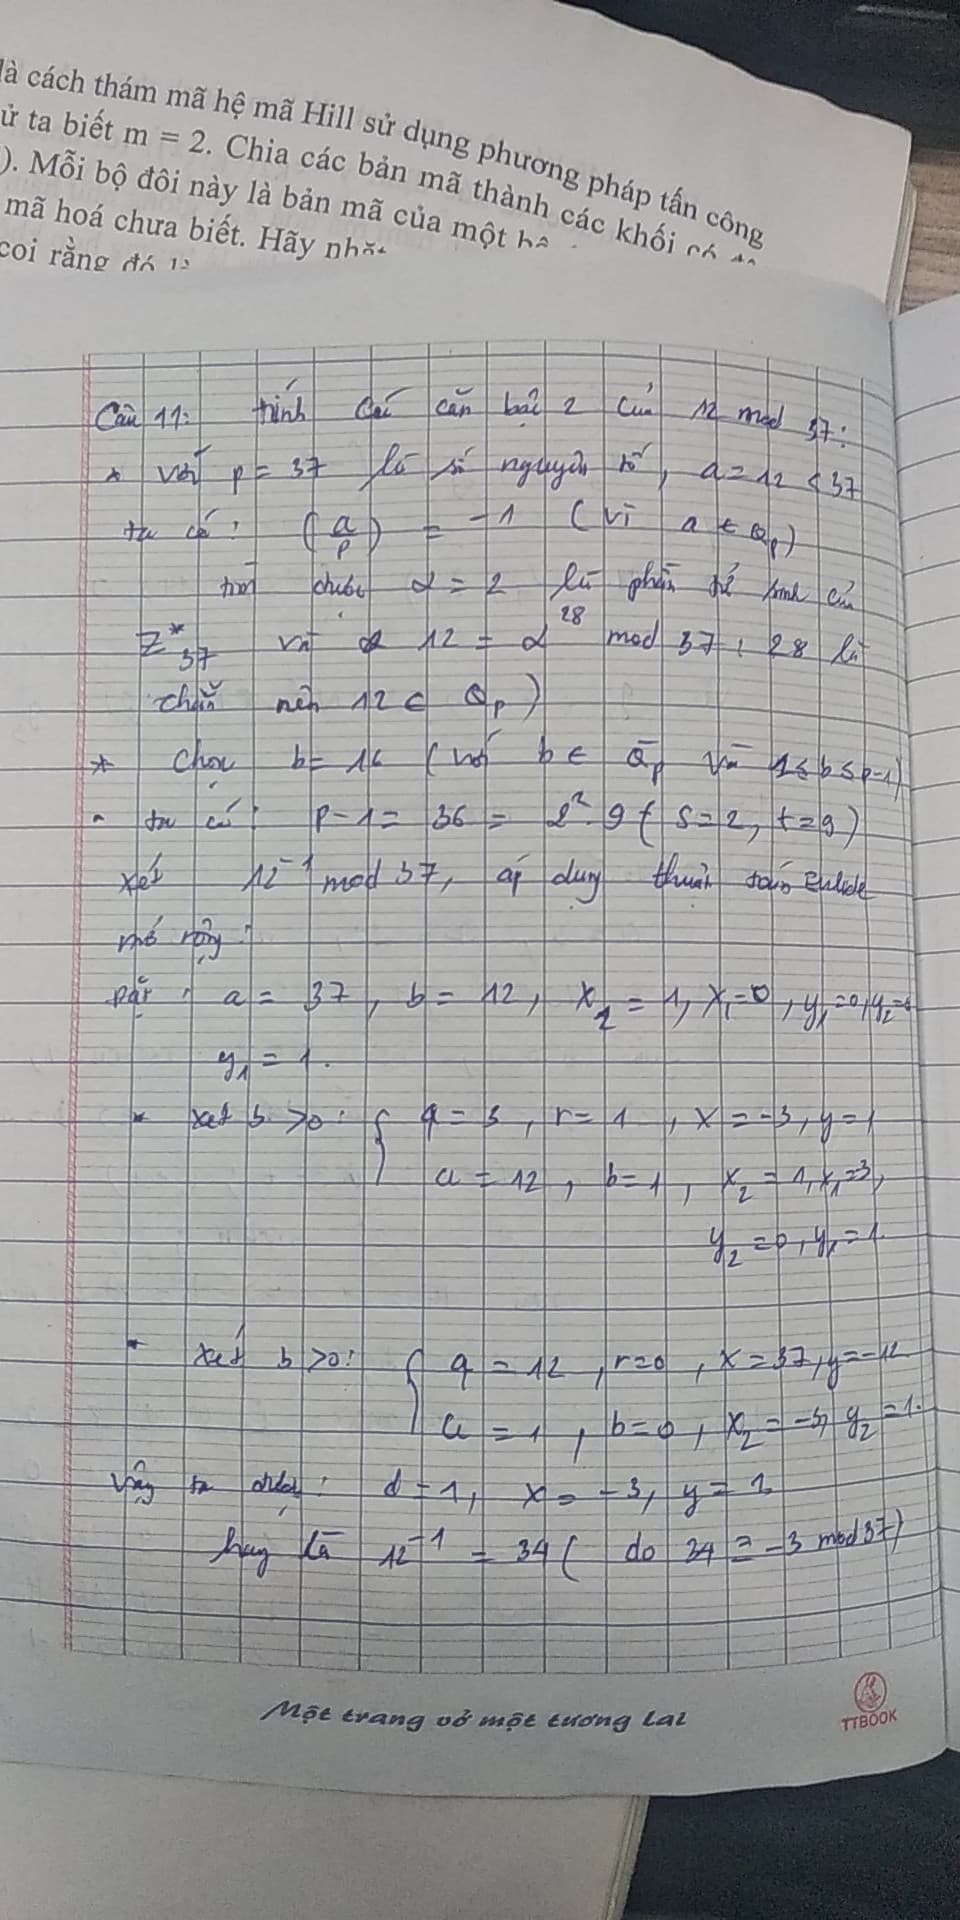 là cách thám mã hệ mã Hill sử dụng phương pháp tấn công
ử ta biết m = 2. Chia các bản mã thành các khối có
). Mỗi bộ đôi này là bản mã của một
mã hoá chưa biết. Hãy
coi rằng đó là
Câu 11: tính các căn bậc 2 của 12 mod 37:
* với p = 37 là số nguyên tố, a = 12 < 37
ta có: (a/p) = -1 (vì a ∈ Qp)
α = 2 là phần tử sinh của
Z*37 và 12 = α^28 mod 37, 28 là
chẵn nên 12 ∈ Qp)
* Chọn b = 16 (với b ∈ Q̄p và 1 ≤ b ≤ p-1)
- ta có: p-1 = 36 = 2². 9 (s = 2, t = 9)
xét 12⁻¹ mod 37, áp dụng thuật toán Euclide
mở rộng:
Đặt: a = 37, b = 12, x2 = 1, x1 = 0, y1 = 0, y2 =
y1 = 1.
* xét b > 0: { q = 3, r = 1, x = -3, y = 1
a = 12, b = 1, x2 = 1, x1 = 3,
y2 = 0, y1 = 1.
* xét b > 0: { q = 12, r = 0, x = 37, y = -12
a = 1, b = 0, x2 = -3, y2 = 1.
Vậy ta được: d = 1, x = -3, y = 1
hay là 12⁻¹ = 34 (do 34 ≡ -3 mod 37)
Một trang vở một tương lai
TTBOOK